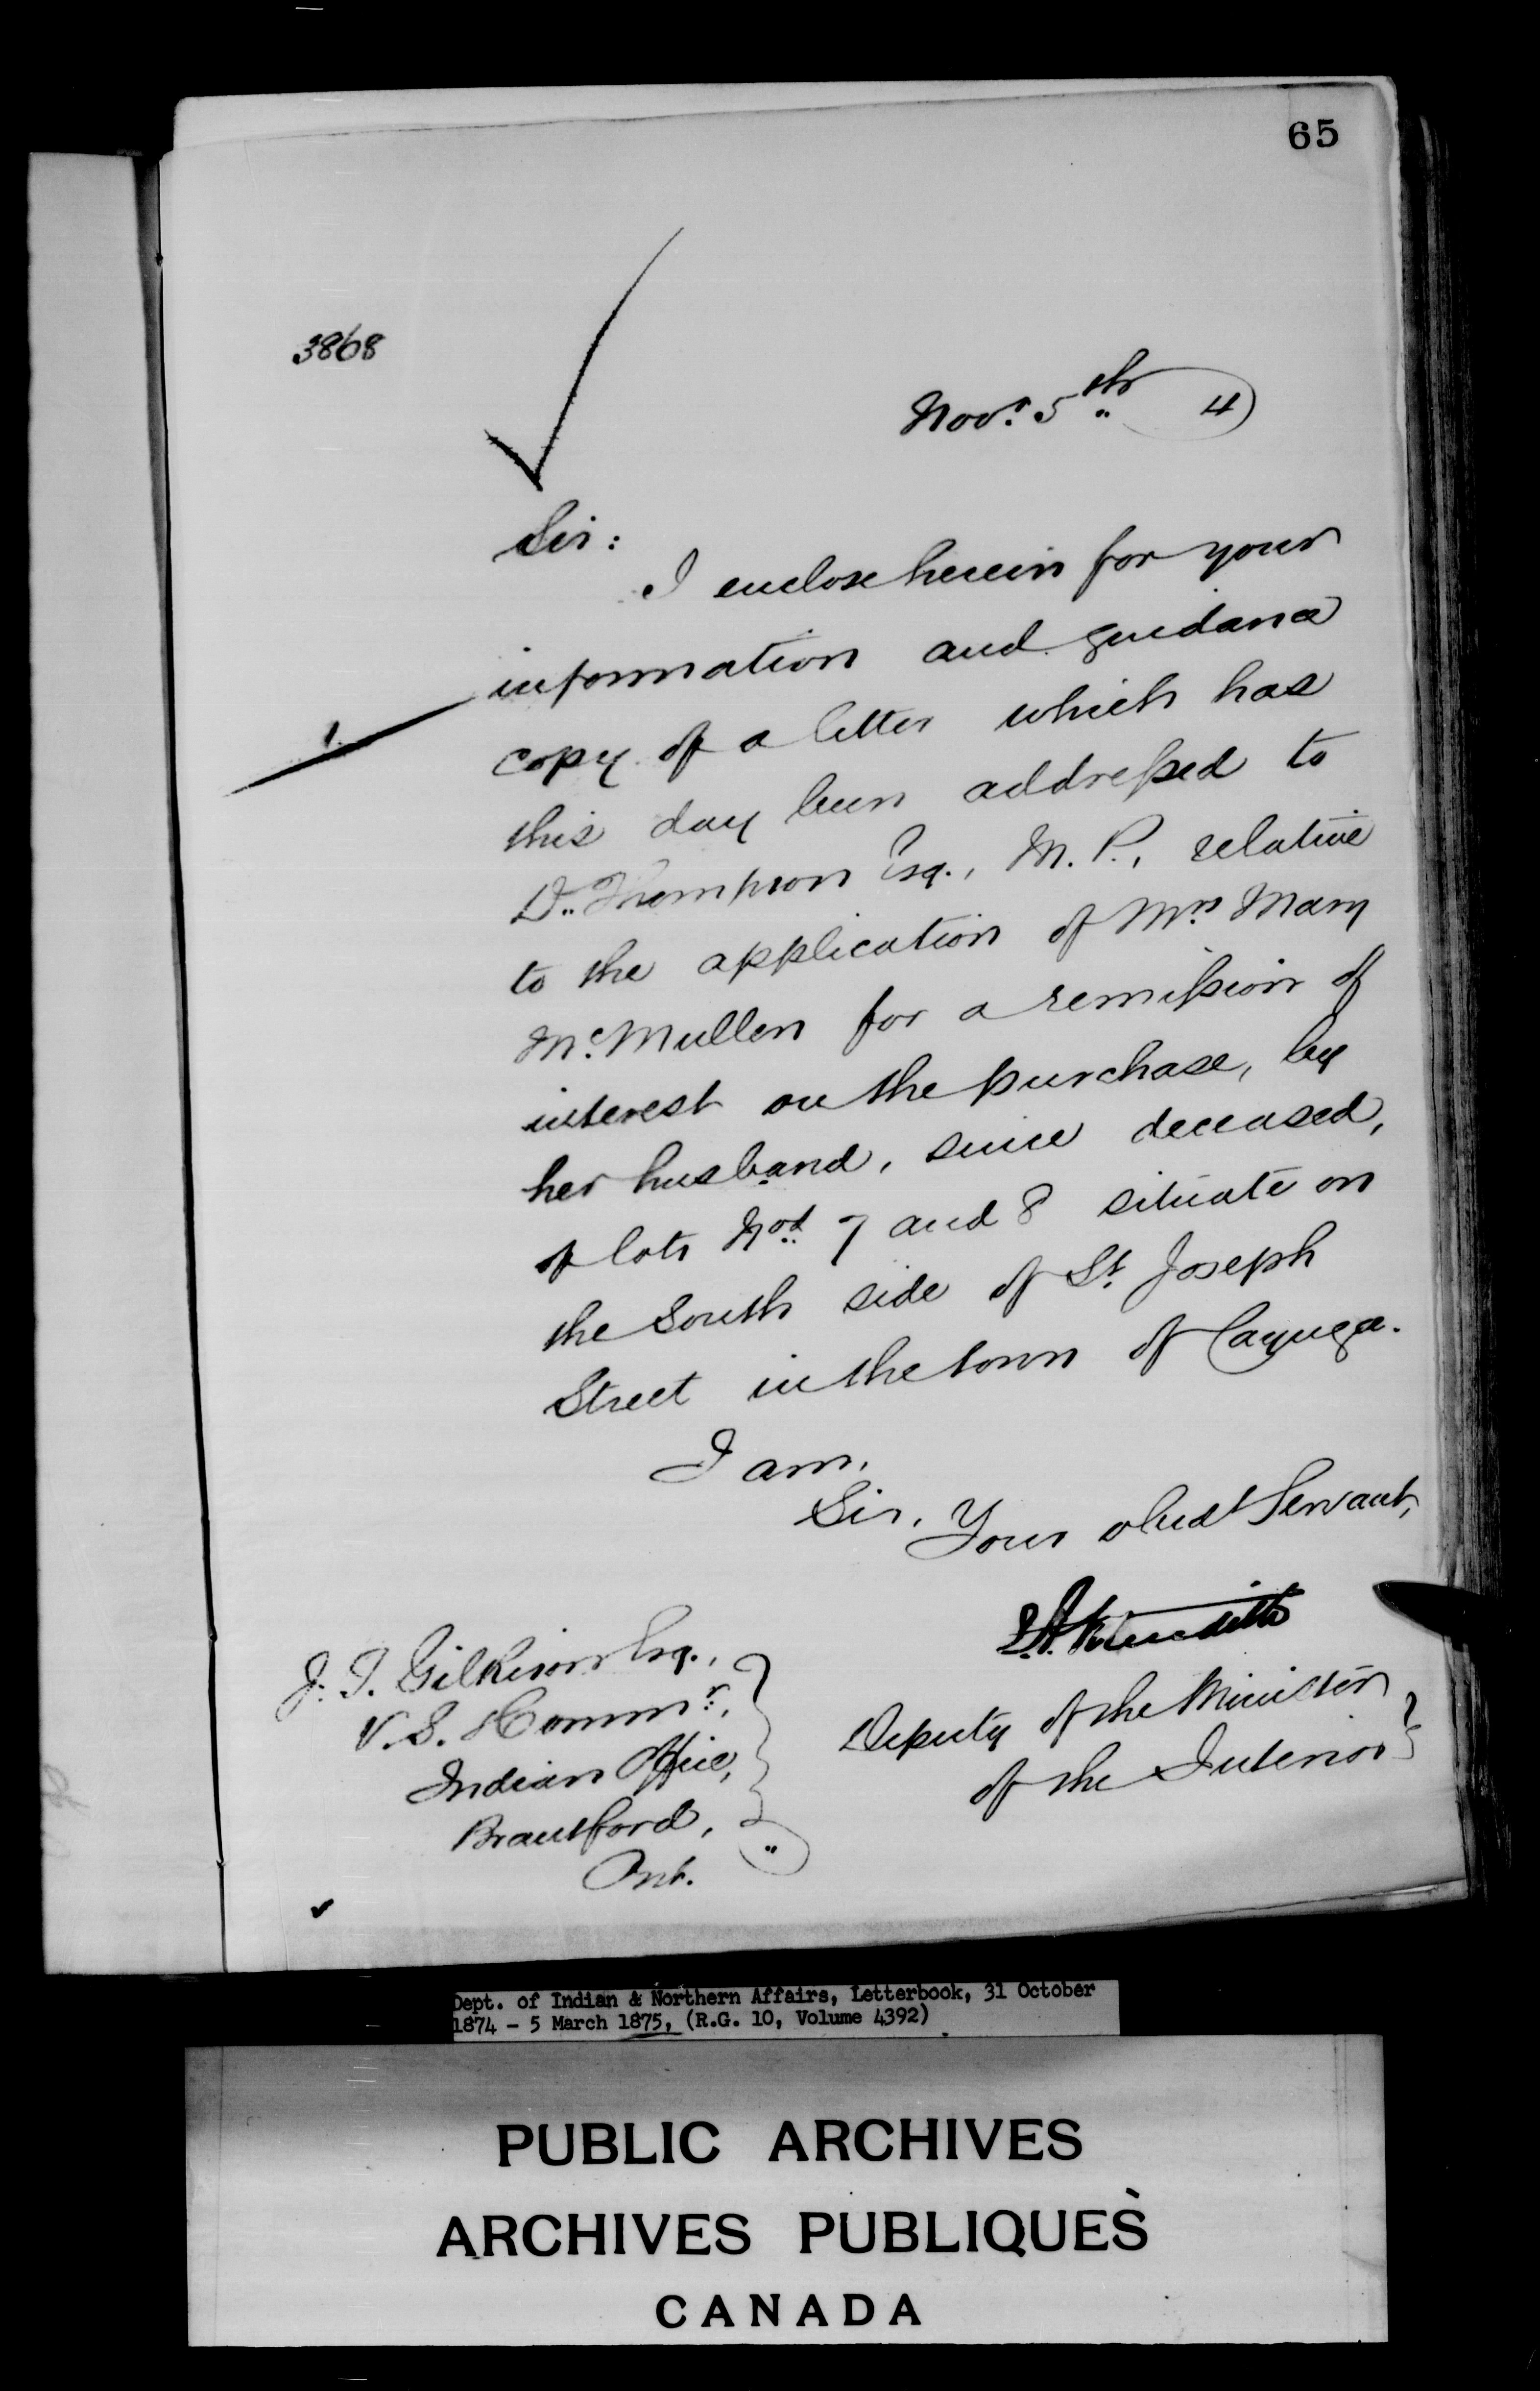 65
3868
Nov.r 5th 4
Sir:
I enclose herein for your
information and guidance
1.
copy of a letter which has
this day been addressed to
D. Thompson Esq., M. P., relative
to the application of Mrs Mary
McMullen for a remission of
interest on the purchase, by
her husband, since deceased,
of lots Nos. 7 and 8 situate on
the South side of St. Joseph
Street in the town of Cayuga.
I am,
Sir,
Your obedt Servant,
E.A. Meredith
Deputy of the Minister
of the Interior
J. T. Gilkison Esq.,
V. S. Commr.,
Indian Office,
Brantford,
Ont.
Dept. of Indian & Northern Affairs, Letterbook, 31 October
1874 - 5 March 1875, (R.G. 10, Volume 4392)
PUBLIC ARCHIVES
ARCHIVES PUBLIQUES
CANADA